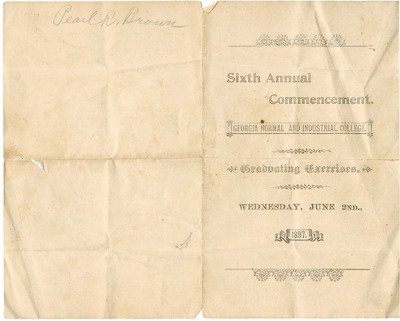 Pearl R. Brown
Sixth Annual
Commencement.
GEORGIA NORMAL AND INDUSTRIAL COLLEGE.
Graduating Exercises.
WEDNESDAY, JUNE 2ND.,
1897.